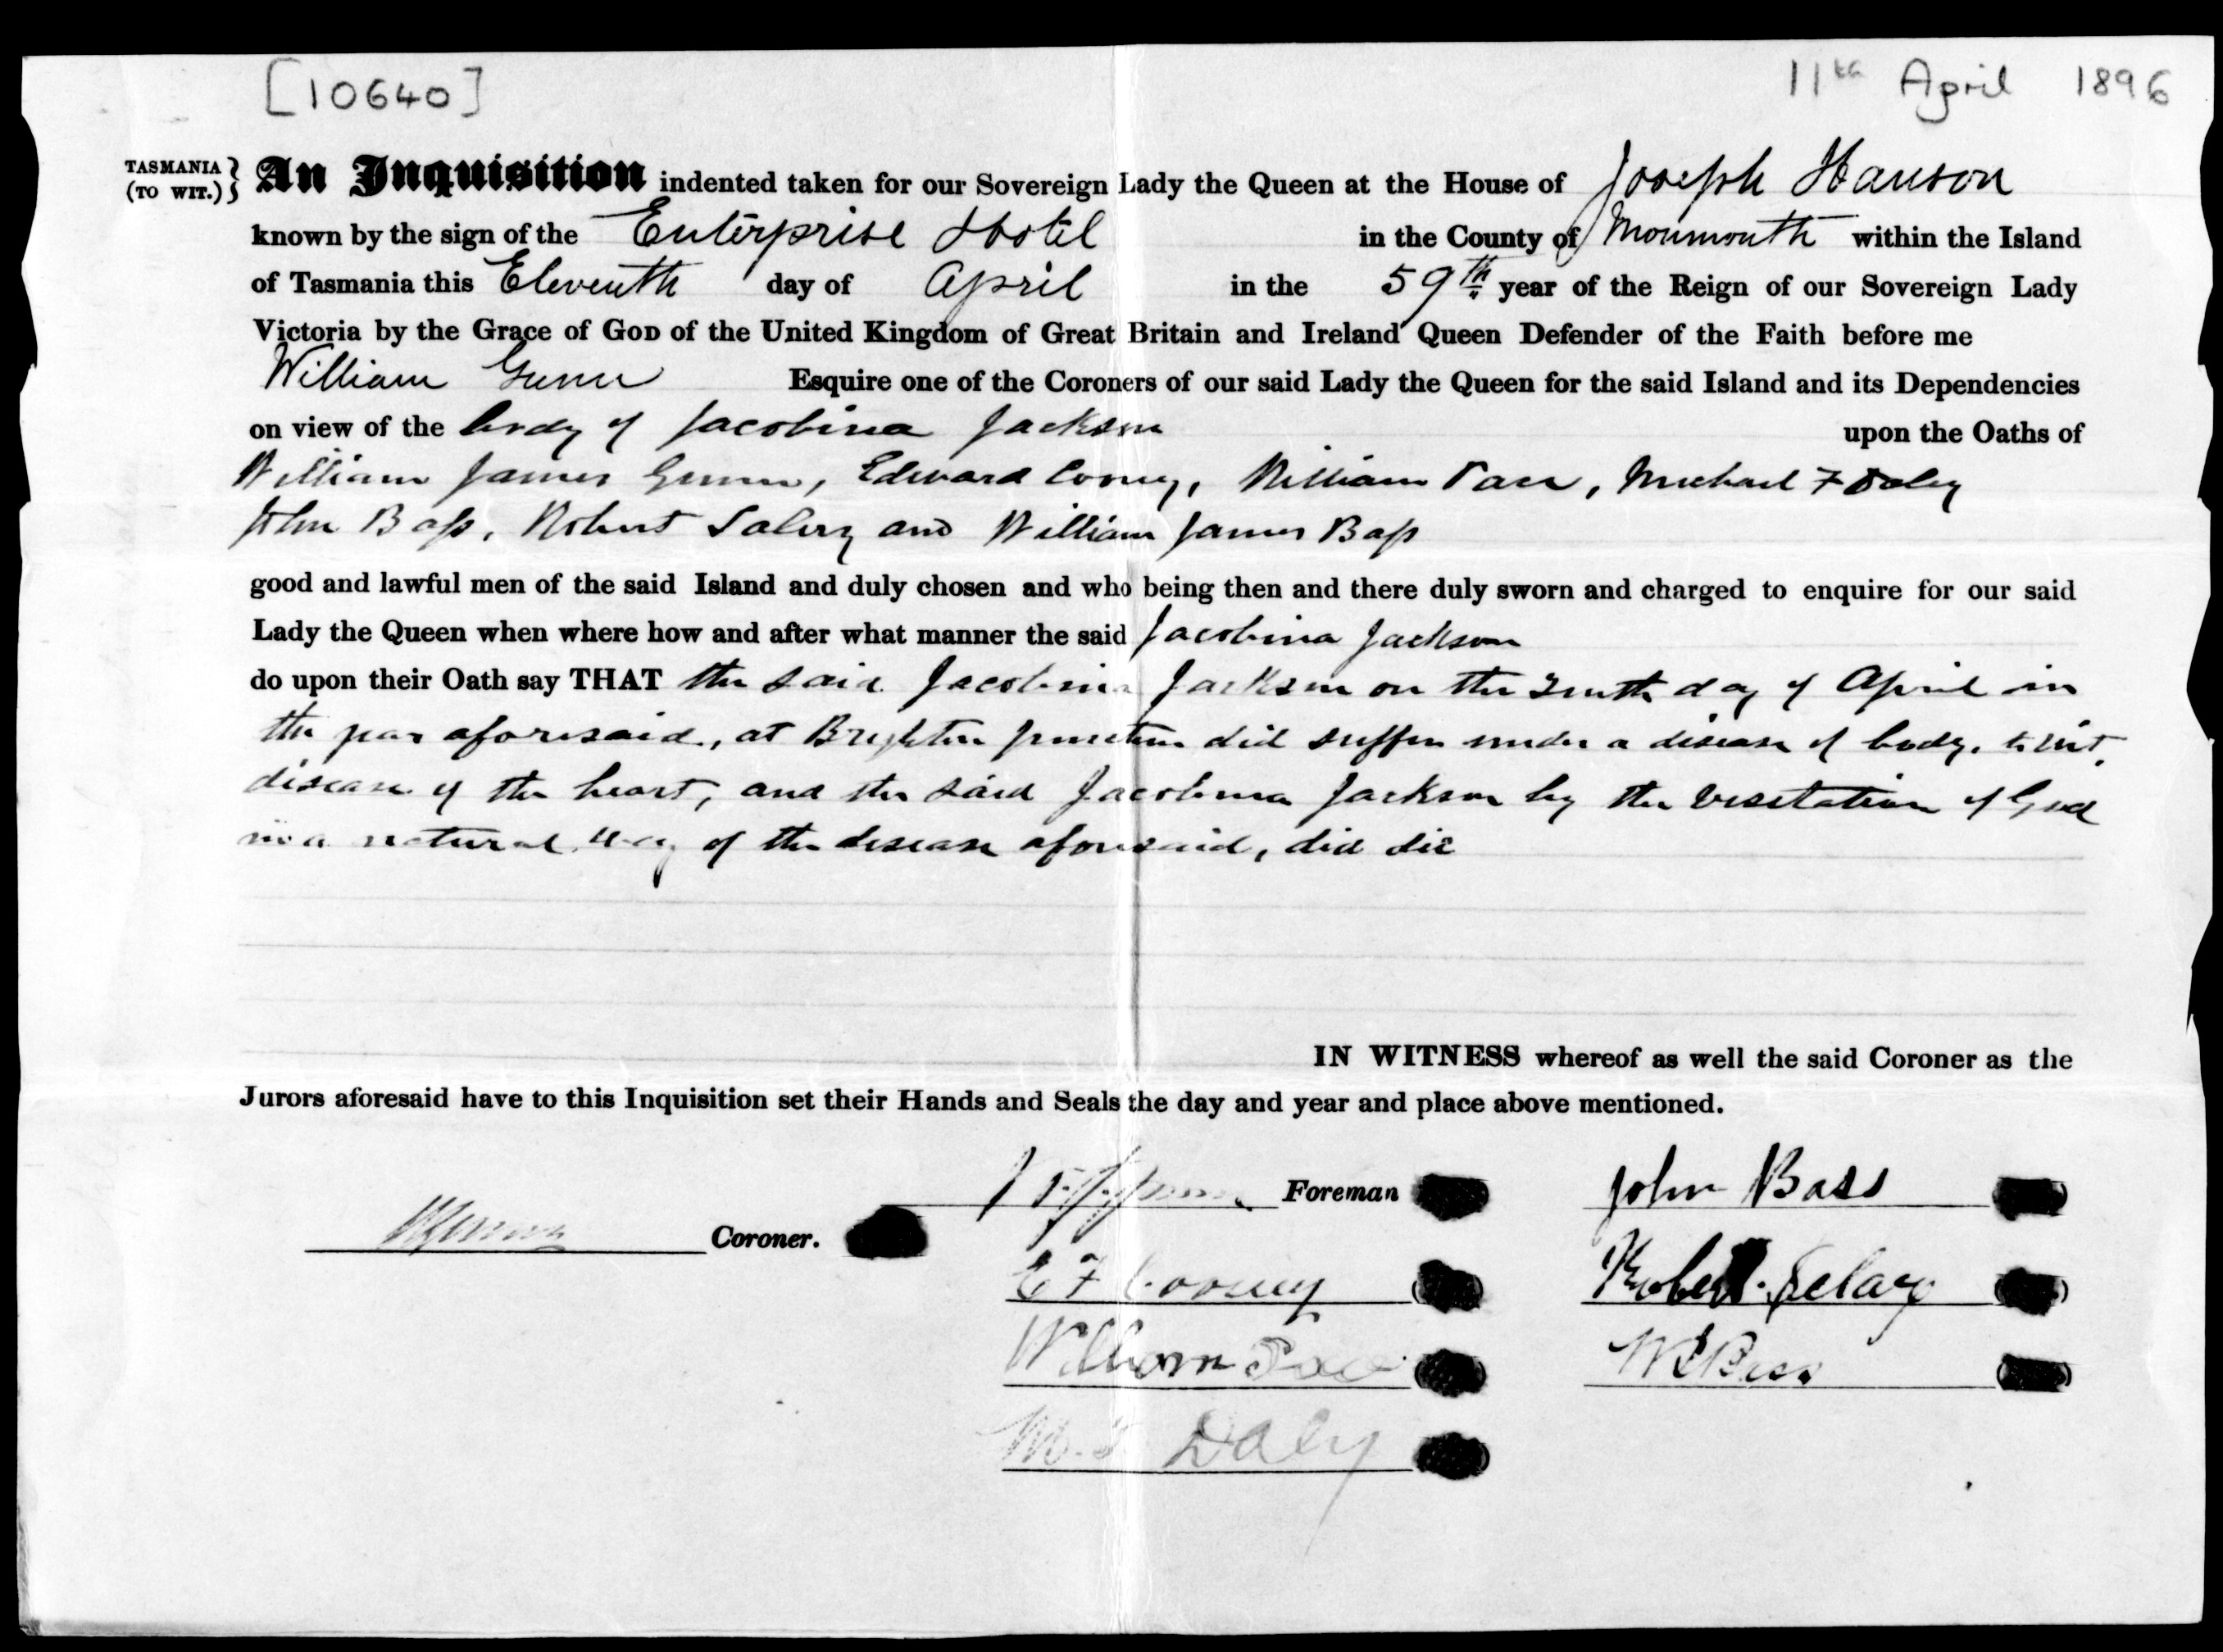 [10640]
11th April 1896
TASMANIA
(TO WIT.) } An Inquisition indented taken for our Sovereign Lady the Queen at the House of Joseph Hanson
known by the sign of the Enterprise Hotel in the County of Monmouth within the Island
of Tasmania this Eleventh day of April in the 59th year of the Reign of our Sovereign Lady
Victoria by the Grace of GOD of the United Kingdom of Great Britain and Ireland Queen Defender of the Faith before me
William Gunn Esquire one of the Coroners of our said Lady the Queen for the said Island and its Dependencies
on view of the body of Jacobina Jackson upon the Oaths of
William James Gunn, Edward Cooney, William, Michael F Daly
John Bass, Robert and William James Bass
good and lawful men of the said Island and duly chosen and who being then and there duly sworn and charged to enquire for our said
Lady the Queen when where how and after what manner the said Jacobina Jackson
do upon their Oath say THAT the said Jacobina Jackson on the Tenth day of April in
the year aforesaid, at Brighton Junction did suffer under a disease of body, to wit,
disease of the heart, and the said Jacobina Jackson by the visitation of God
in a natural way of the disease aforesaid, did die
IN WITNESS whereof as well the said Coroner as the
Jurors aforesaid have to this Inquisition set their Hands and Seals the day and year and place above mentioned.
Foreman John Bass
W Gunn Coroner.
E F Cooney Robert
William W J Bass
M. F Daly